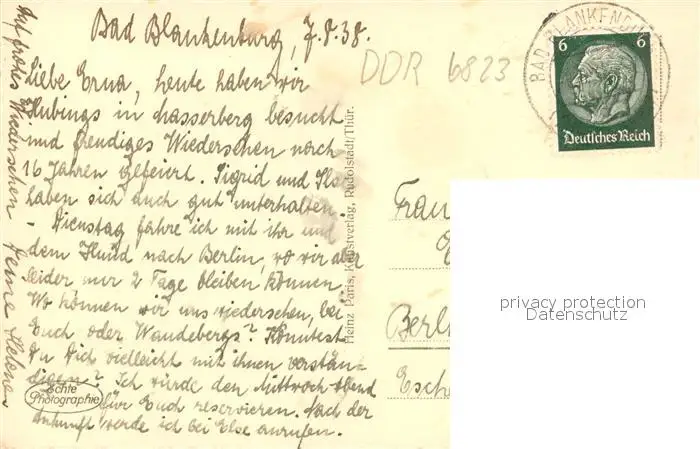 Bad Blankenburg, 7.8.38.
Liebe Erna, heute haben wir
Hubings in Gasserberg besucht
und freudiges Wiedersehen nach
16 Jahren gefeiert. Sigrid und Ilse
haben sich auch gut unterhalten.
- Dienstag fahre ich mit ihr und
dem Hund nach Berlin, wo wir aber
leider nur 2 Tage bleiben können.
Wo können wir uns wiedersehen, bei
Euch oder Wandebergs? Könntest
Du Dich vielleicht mit ihnen verstän-
digen? Ich würde den Mittwoch abend
für Euch reservieren. Nach der
Ankunft werde ich bei Else anrufen.
Auf frohes Wiedersehen Deine Helene
Echte
Photographie
Heinz Paris, Kunstverlag, Rudolstadt/Thür.
DDR 6823
BAD BLANKENBURG
6 6
Deutsches Reich
Frau
Berl
Esch
privacy protection
Datenschutz